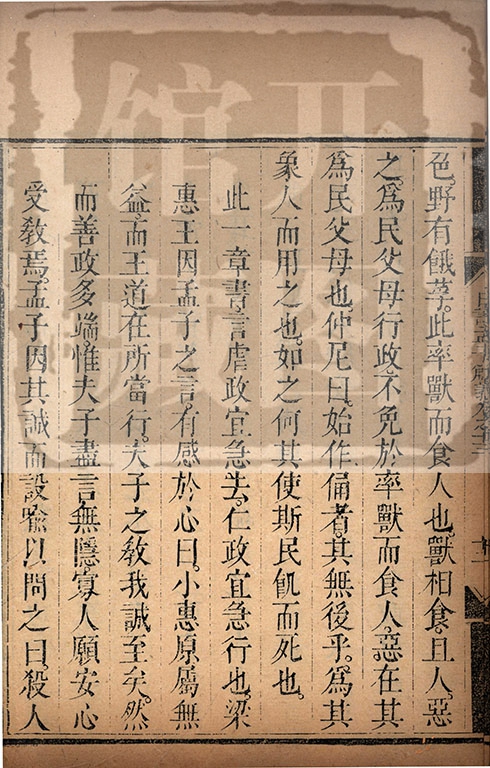 色。野有餓莩。此率獸而食人也。獸相食。且人。惡
之。爲民父母行政不免於率獸而食人。惡在其
爲民父母也。仲尼曰。始作俑者。其無後乎。爲其
象人而用之也。如之何其使斯民飢而死也。
此一章書言虐政宜急去。仁政宜急行也。梁
惠王因孟子之言。有感於心曰。小惠原屬無
益。而王道在所當行。夫子之教我誠至矣。然
而善政多端。惟夫子盡言無隱。寡人願安心
受敎焉。孟子因其誠而設喻以問之曰。殺人